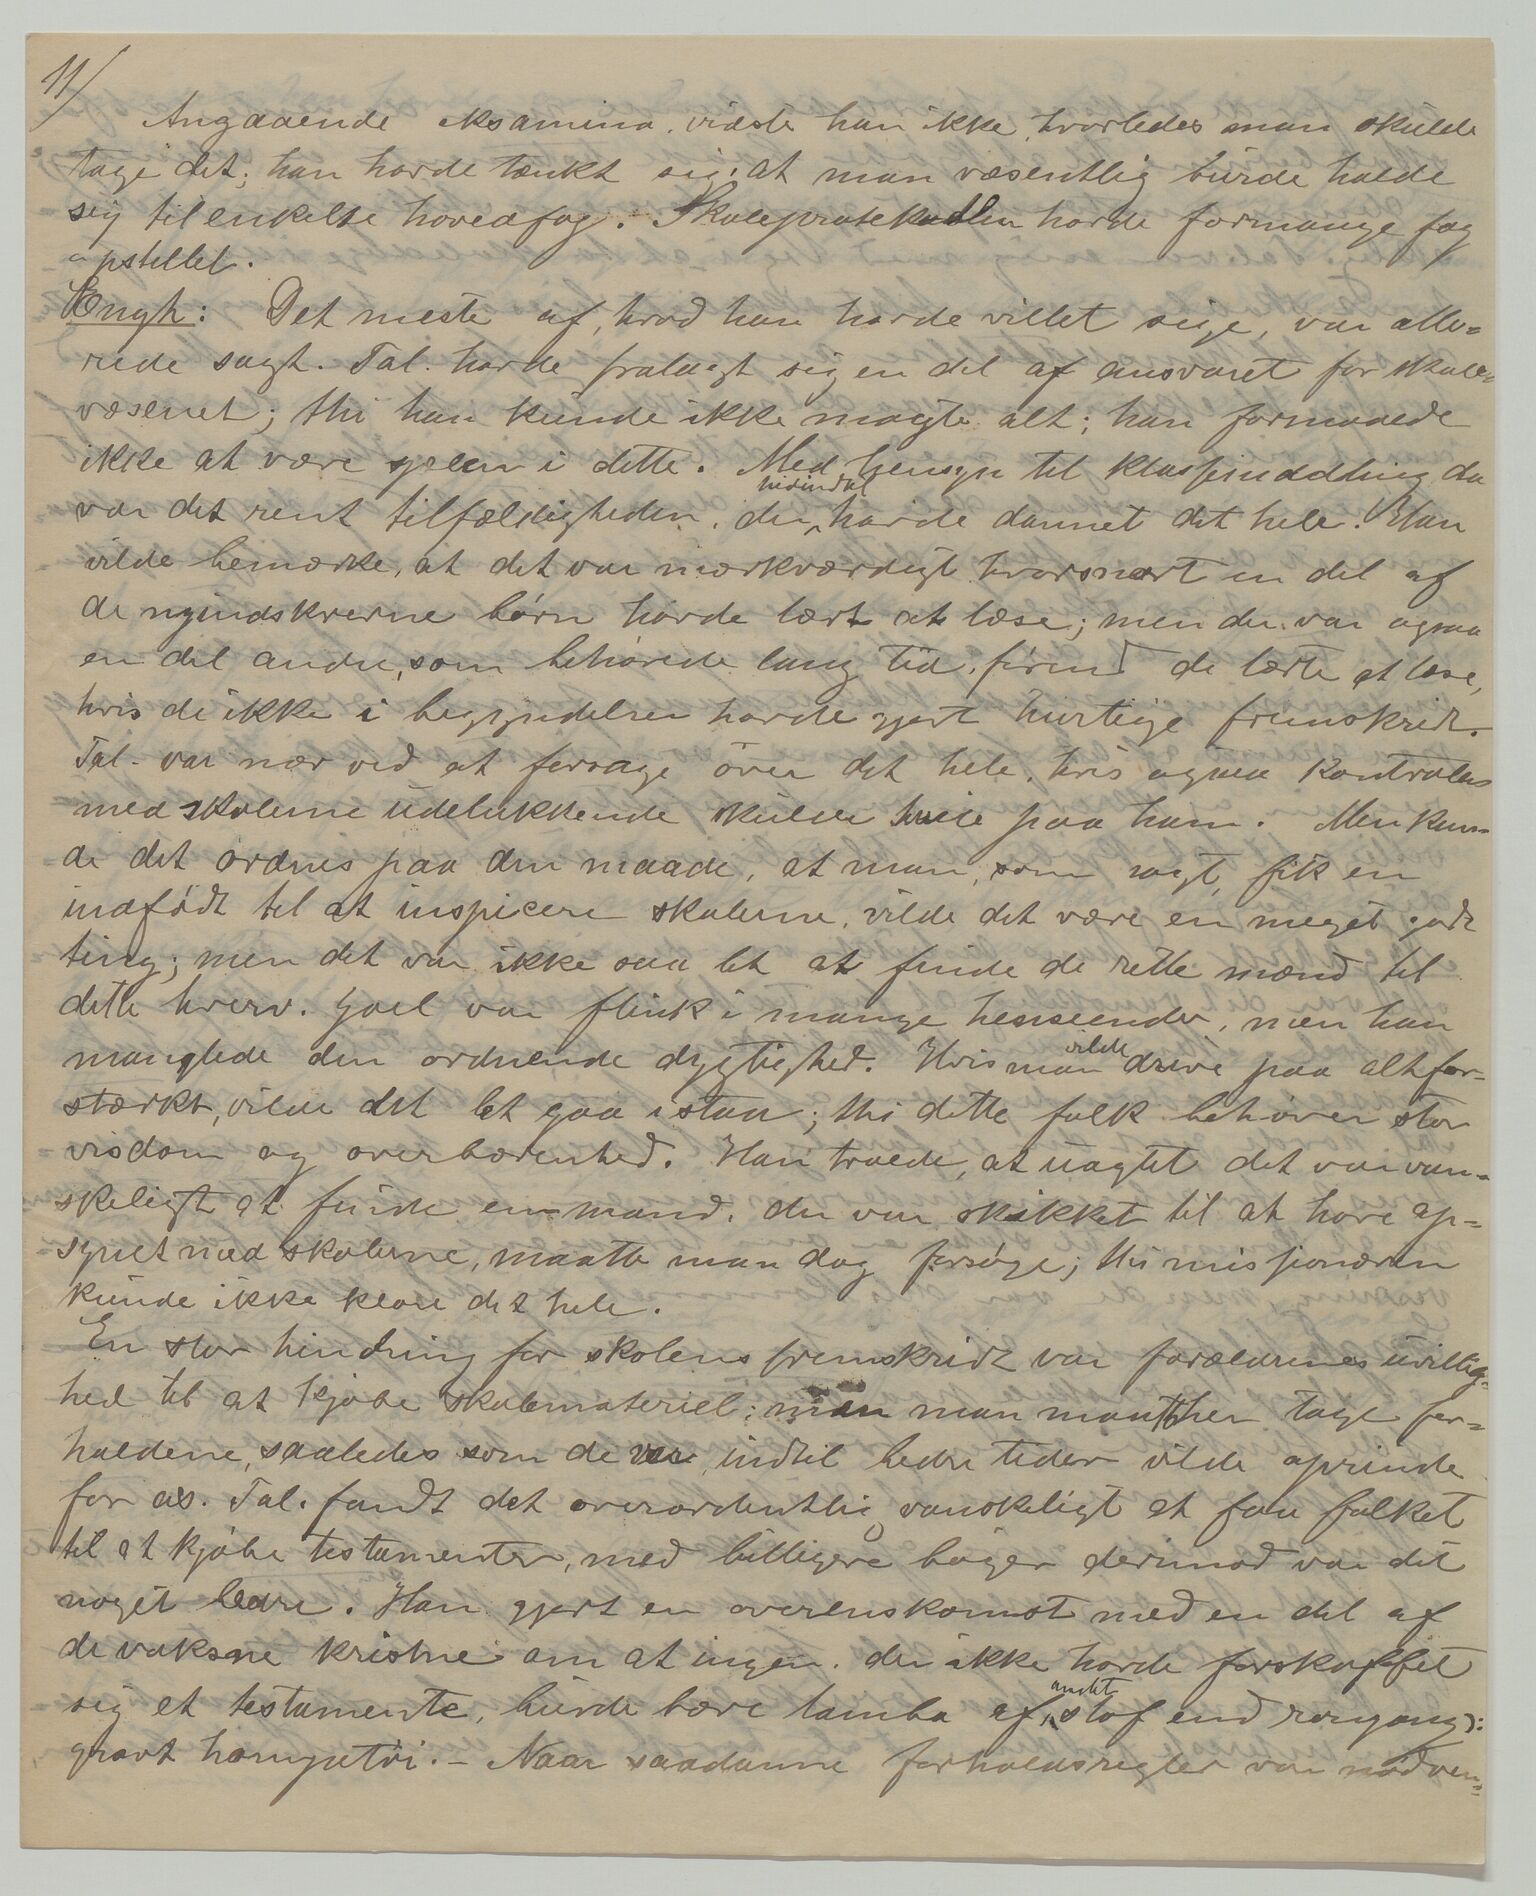 11/
Angaaende eksamina, vidste han ikke, hvorledes man skulde
tage det; han havde tænkt sig, at man væsentlig burde holde
sig til enkelte hovedfag. Skoleprotokollen havde formange fag
opstillet.
Engh: Det meste af, hvad han havde villet sige, var alle-
rede sagt. Tal. havde fralagt sig en del af ansvaret for skole-
væsenet; thi han kunde ikke magte alt; han formaaede
ikke at være sjælen i dette. Med hensyn til klasseinddeling, da
var det rent tilfældigheden, der hidindtil havde dannet det hele. Han
vilde bemærke, at det var mærkværdigt hvorsnart en del af
de nyindskrevne børn havde lært at læse; men der var ogsaa
en del andre, som behøvede lang tid, førend de lærte at læse,
hvis de ikke i begyndelsen havde gjort hurtige fremskridt.
Tal. var nær ved at forsage over det hele, hvis ogsaa kontrolen
med skolerne udelukkende skulde hvile paa ham. Men kun-
de det ordnes paa den maade, at man, som sagt, fik en
indfødt til at inspicere skolerne, vilde det være en meget god
ting; men det var ikke saa let at finde de rette mænd til
dette hverv. Joel var flink i mange henseender, men han
manglede den ordnende dygtighed. Hvis man vilde drive paa altfor-
stærkt, vilde det let gaa istaa; thi dette folk behøver stor
visdom og overbærenhed. Han troede, at uagtet det var van-
skeligt at finde en mand, der var skikket til at have op-
synet med skolerne, maatte man dog forsøge; thi missionæren
kunde ikke klare det hele.
En stor hindring for skolens fremskridt var forældrenes uvillig-
hed til at kjøbe skolemateriel; men man maatte her tage for-
holdene, saaledes som de var, indtil bedre tider vilde oprinde
for os. Tal. fandt det overordentlig vanskeligt at faa folket
til at kjøbe testamenter, med billigere bøger derimod var det
noget bedre. Han gjort en overenskomst med en del af
de voksne kristne om at ingen, der ikke havde forskaffet
sig et testamente, burde bære lamba af andet stof end rongony ɔ:
grovt hamptøi. – Naar saadanne forholdsregler var nødven-